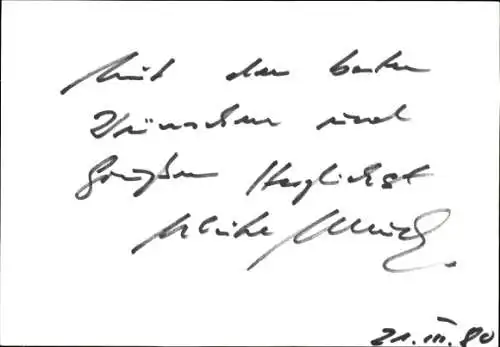 Mit den besten
Wünschen und
Grüßen Herzlichst
Ulrike
21.III.80